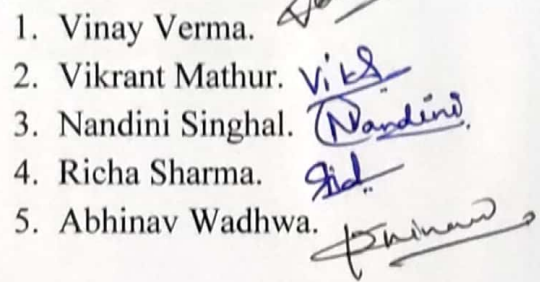 1. Vinay Verma.
2. Vikrant Mathur. Vik
3. Nandini Singhal. Nandini
4. Richa Sharma.
5. Abhinav Wadhwa.